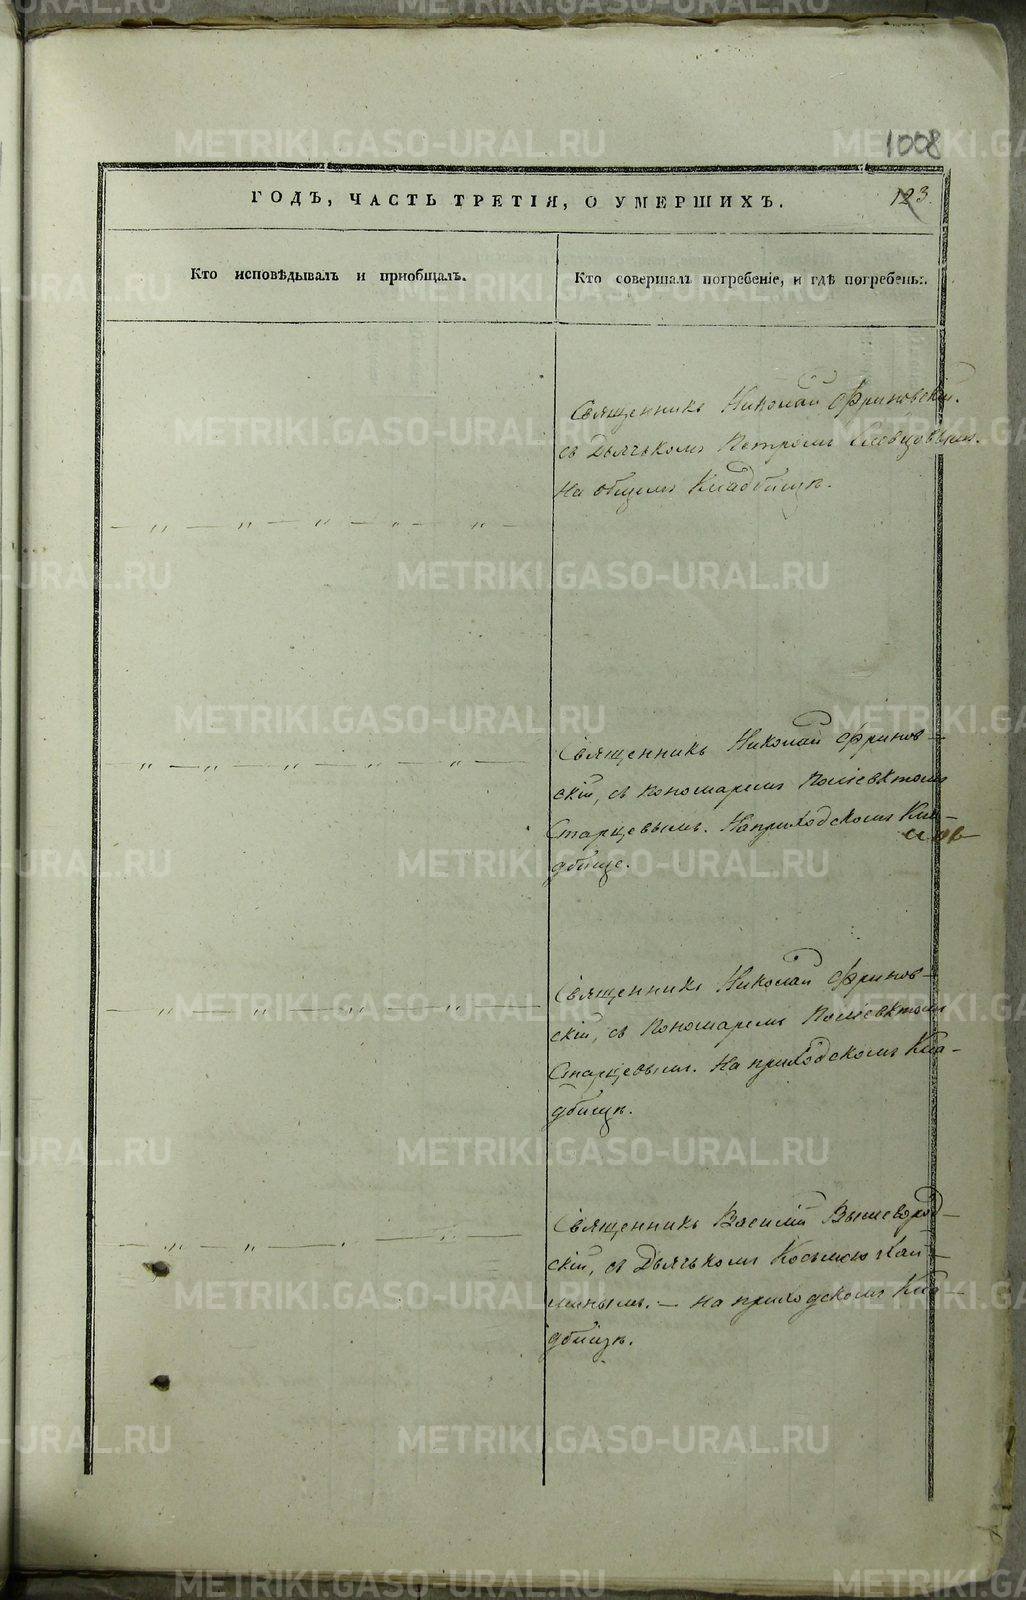 1008
ГОДЪ, ЧАСТЬ ТРЕТІЯ, О УМЕРШИХЪ.
123.
Кто исповѣдывалъ и пріобщалъ.
Кто совершалъ погребеніе, и гдѣ погребены.
Священникъ Николай Фриновскій.
съ Дьячкомъ Петромъ Словцовымъ.
На общемъ Кладбищѣ.
— „ — „ — „ — „ — „ —
Священникъ Николай Фринов-
скій, съ Пономаремъ Поліевктомъ
Старцевымъ. На приходскомъ Кла-
дбище.
— „ — „ — „ — „ — „ —
Священникъ Николай Фринов-
скій, съ Пономаремъ Поліевктомъ
Старцевымъ. На приходскомъ Кла-
дбищѣ.
— „ — „ — „ — „ — „ —
Священникъ Василій Вышегород-
скій, съ Дьячкомъ Косьмою Кал-
ининымъ. — на приходскомъ Кла-
дбищѣ.
— „ — „ — . — „ —
METRIKI.GASO-URAL.RU